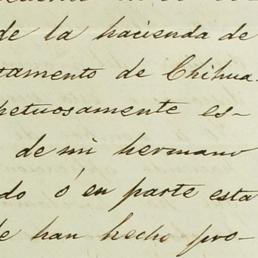 de la hacienda de
tamento de Chihua-
petuosamente es-
de mi hermano
do ó en parte esta
e han hecho pro-